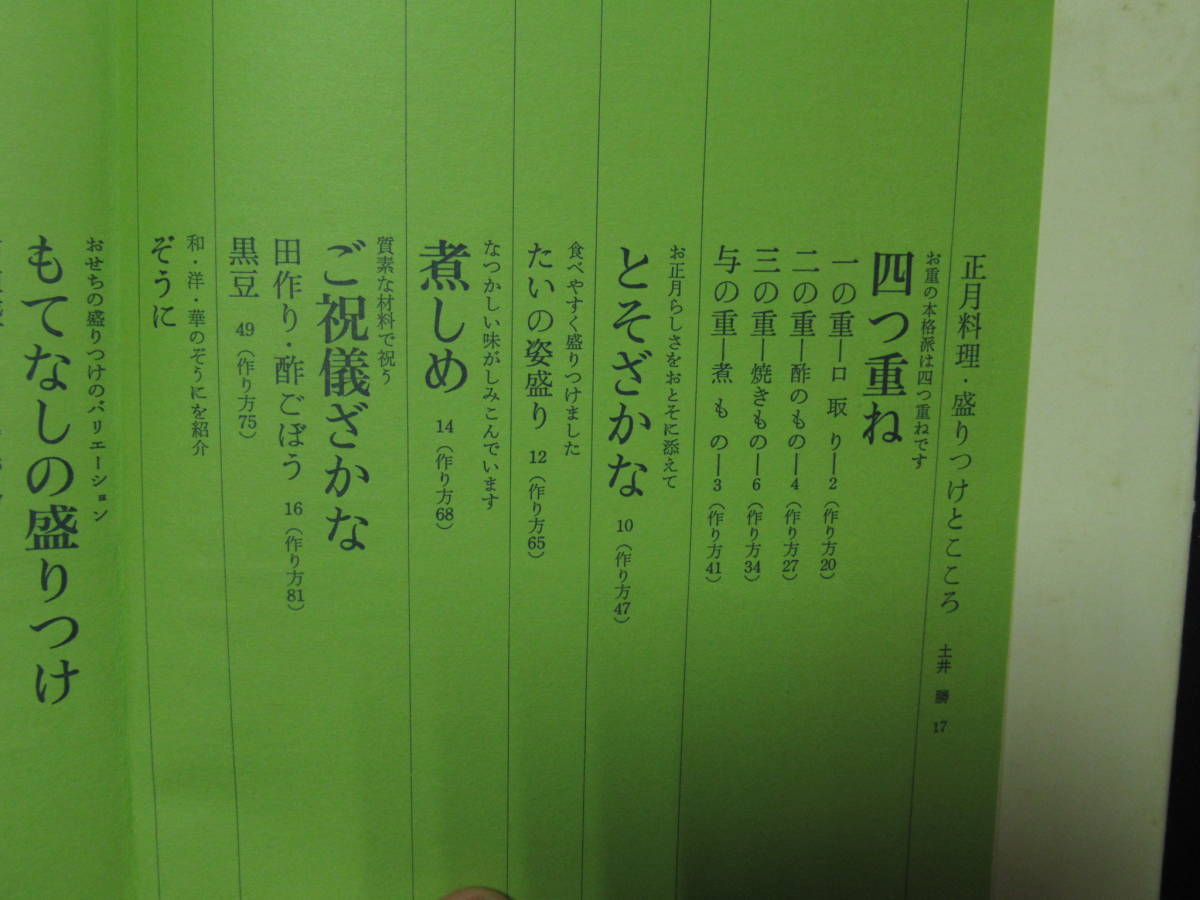 正月料理・盛りつけとこころ 土井 勝 17
お重の本格派は四つ重ねです
四つ重ね
一の重—口取り—2（作り方20）
二の重—酢のもの—4（作り方27）
三の重—焼きもの—6（作り方34）
与の重—煮もの—3（作り方41）
お正月らしさをおとそに添えて
とそざかな 10（作り方47）
食べやすく盛りつけました
たいの姿盛り 12（作り方65）
なつかしい味がしみこんでいます
煮しめ 14（作り方68）
質素な材料で祝う
ご祝儀ざかな
田作り・酢ごぼう 16（作り方81）
黒豆 49（作り方75）
和・洋・華のぞうにを紹介
ぞうに
おせちの盛りつけのバリエーション
もてなしの盛りつけ